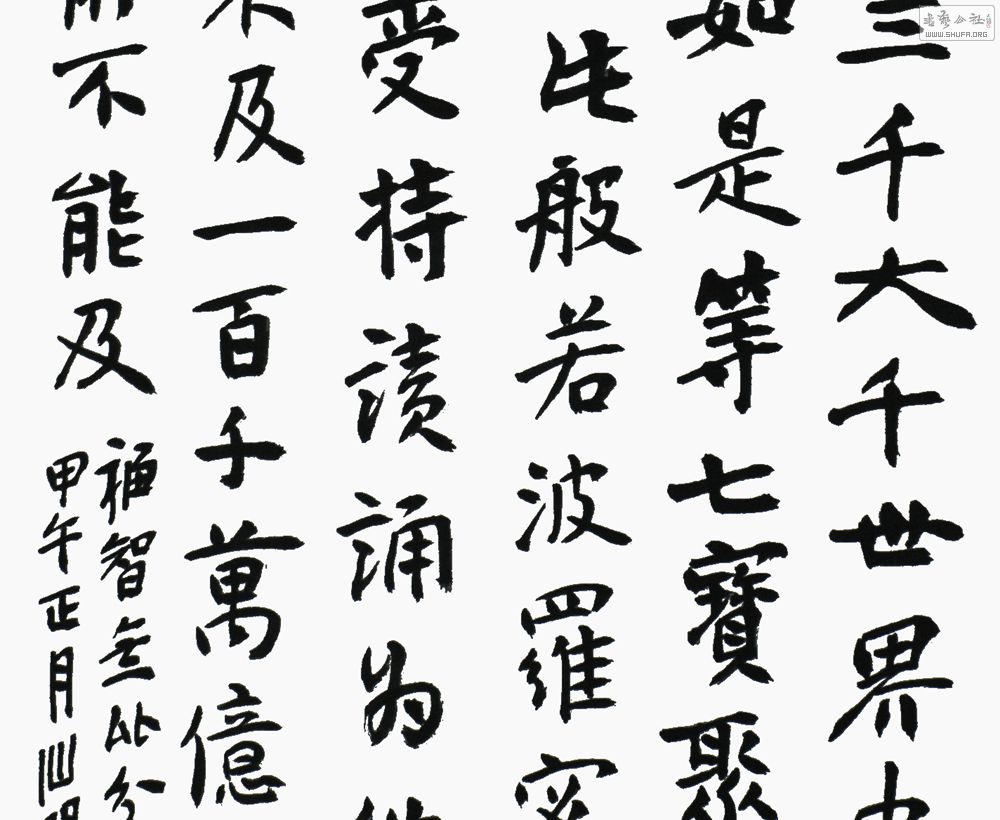 三千大千世界中
如是等七寶聚
此般若波羅密
受持讀誦為
不及一百千萬億
所不能及
福智無比分
甲午正月
書藝公社
WWW.SHUFA.ORG